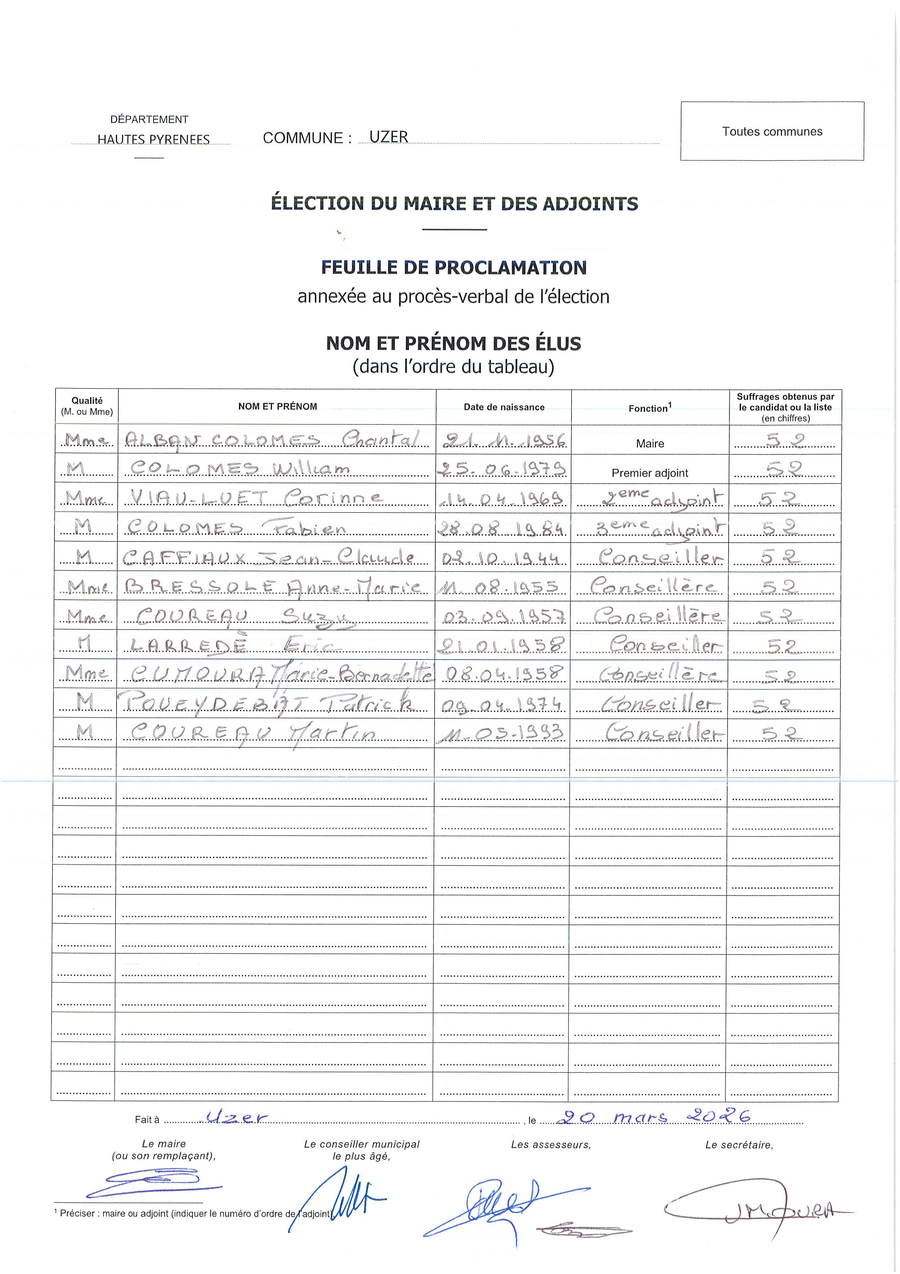 DÉPARTEMENT
HAUTES PYRENEES
COMMUNE : UZER
Toutes communes
ÉLECTION DU MAIRE ET DES ADJOINTS
FEUILLE DE PROCLAMATION
annexée au procès-verbal de l'élection
NOM ET PRÉNOM DES ÉLUS
(dans l'ordre du tableau)
Qualité (M. ou Mme) NOM ET PRÉNOM Date de naissance Fonction¹ Suffrages obtenus par le candidat ou la liste (en chiffres)
Mme ALBAN COLOMES Chantal 21.11.1956 Maire 52
M COLOMES William 25.06.1979 Premier adjoint 52
Mme VIAU-LUET Corinne 14.04.1969 2eme adjoint 52
M COLOMES Fabien 28.08.1984 3eme adjoint 52
M CAFFIAUX Jean-Claude 02.10.1944 Conseiller 52
Mme BRESSOLE Anne-Marie 11.08.1955 Conseillère 52
Mme COUREAU Suzy 03.09.1957 Conseillère 52
M LARREDÈ Eric 21.01.1958 Conseiller 52
Mme CUMOURA Marie-Bernadette 08.04.1958 Conseillère 52
M POUEYDEBAT Patrick 09.04.1974 Conseiller 52
M COUREAU Martin 11.05.1993 Conseiller 52
Fait à Uzer, le 20 mars 2026
Le maire (ou son remplaçant),
Le conseiller municipal le plus âgé,
Les assesseurs,
Le secrétaire,
¹ Préciser : maire ou adjoint (indiquer le numéro d'ordre de l'adjoint